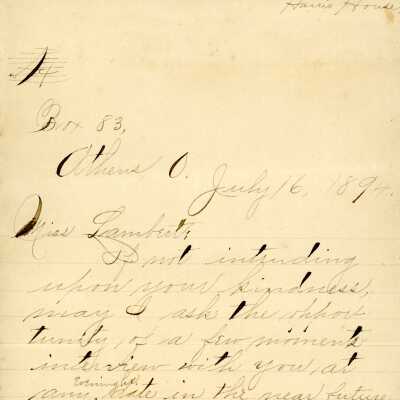 Harris House,
Box 83,
Athens O.
July 16, 1894.
Miss Lambert;
If not intruding
upon your kindness,
may I ask the oppor
tunity, of a few moments
interview with you, at
any date in the near future